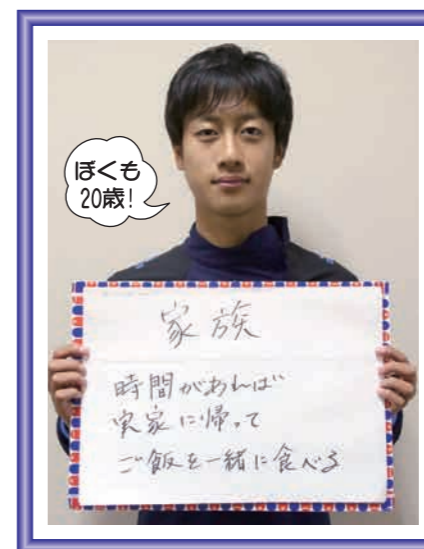 ぼくも
20歳!
家族
時間があれば
実家に帰って
ご飯を一緒に食べる